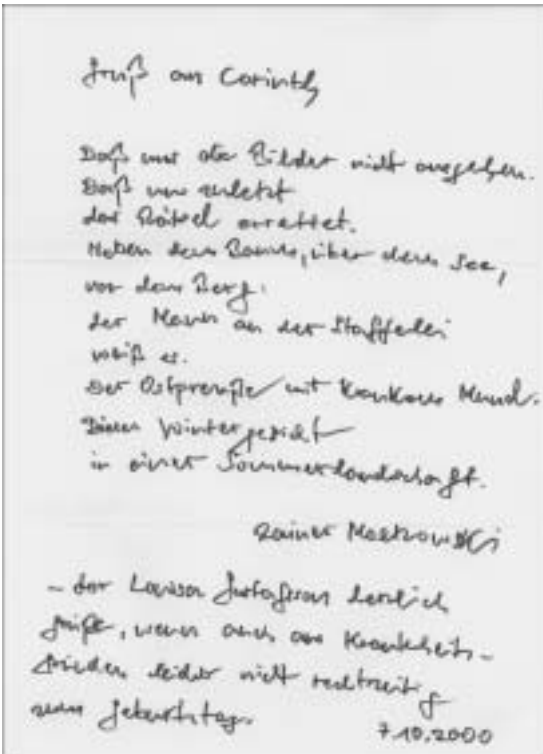 Gruß an Corinth
Daß uns die Bilder nicht ausgehen.
Daß uns zuletzt
das Rätsel errettet.
Neben dem Baum, über dem See,
vor dem Berg:
der Mann an der Staffelei
weiß es.
Der Ostpreuße mit krankem Mund.
Wintergesicht
in einer Sommerlandschaft.
Rainer Malkowski
– der Gustafsson herzlich
grüßt, wenn auch aus Krankheits-
gründen leider nicht rechtzeitig
zum Geburtstag.
7.10.2000